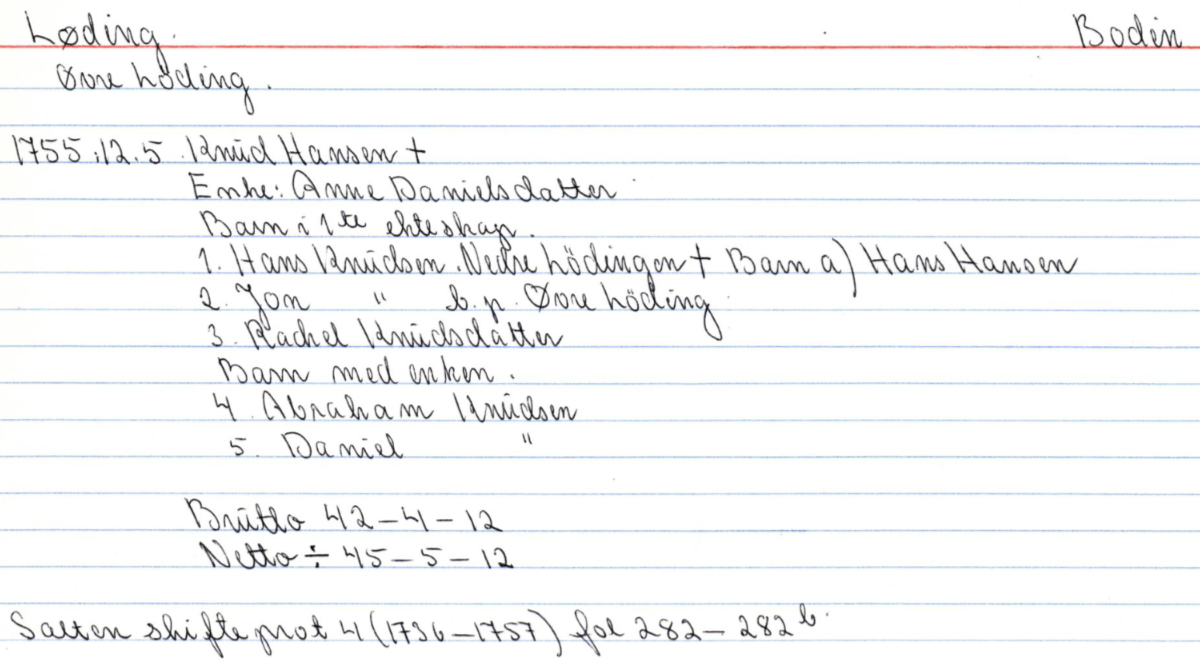 Løding. Bodin
Øvre Löding.
1755.12.5. Knud Hansen †
Enke: Anne Danielsdatter
Barn i 1te ekteskap.
1. Hans Knudsen. Nedre Lödingen † Barn a) Hans Hansen
2. Jon " b.p. Øvre Löding
3. Rachel Knudsdatter
Barn med enken.
4. Abraham Knudsen
5. Daniel "
Brutto 42-4-12
Netto ÷ 45-5-12
Salten skifteprot 4 (1736-1757) fol 282-282b.